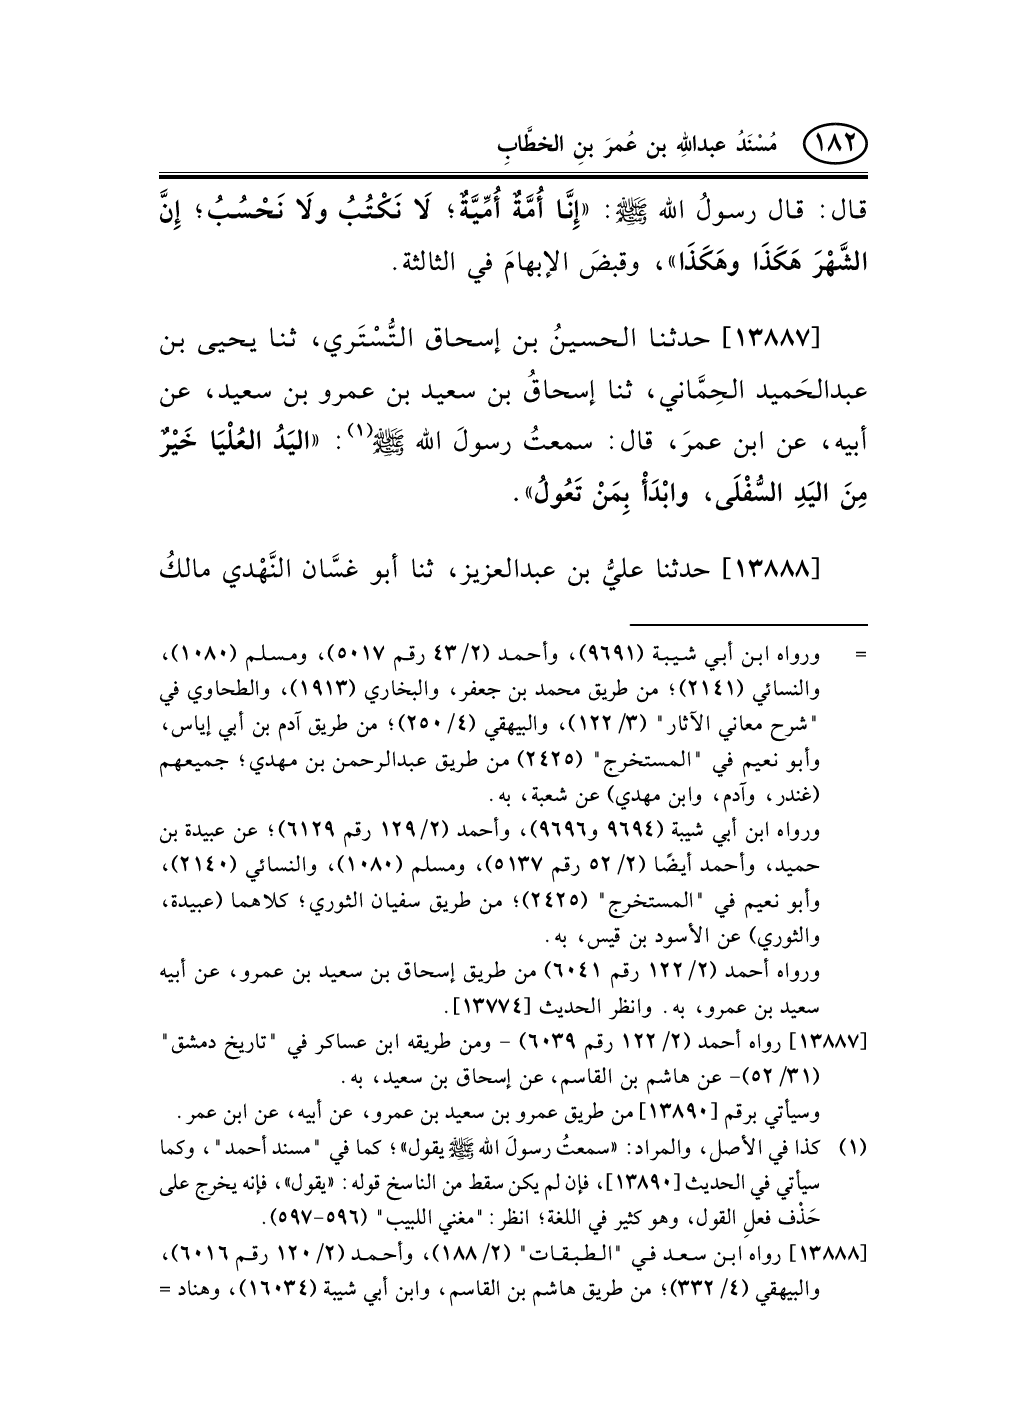 ١٨٢ مُسْنَدُ عبداللهِ بن عُمرَ بنِ الخطَّابِ
قال: قال رسولُ الله ﷺ: «إِنَّا أُمَّةٌ أُمِّيَّةٌ؛ لَا نَكْتُبُ ولَا نَحْسُبُ؛ إِنَّ
الشَّهْرَ هَكَذَا وهَكَذَا»، وقبضَ الإبهامَ في الثالثة.
[١٣٨٨٧] حدثنا الحسينُ بن إسحاق التُّسْتَري، ثنا يحيى بن
عبدالحَميد الحِمَّاني، ثنا إسحاقُ بن سعيد بن عمرو بن سعيد، عن
أبيه، عن ابن عمرَ، قال: سمعتُ رسولَ الله ﷺ(١): «اليَدُ العُلْيَا خَيْرٌ
مِنَ اليَدِ السُّفْلَى، وابْدَأْ بِمَنْ تَعُولُ».
[١٣٨٨٨] حدثنا عليُّ بن عبدالعزيز، ثنا أبو غسَّان النَّهْدي مالكُ
= ورواه ابن أبي شيبة (٩٦٩١)، وأحمد (٢/ ٤٣ رقم ٥٠١٧)، ومسلم (١٠٨٠)،
والنسائي (٢١٤١)؛ من طريق محمد بن جعفر، والبخاري (١٩١٣)، والطحاوي في
"شرح معاني الآثار" (٣/ ١٢٢)، والبيهقي (٤/ ٢٥٠)؛ من طريق آدم بن أبي إياس،
وأبو نعيم في "المستخرج" (٢٤٢٥) من طريق عبدالرحمن بن مهدي؛ جميعهم
(غندر، وآدم، وابن مهدي) عن شعبة، به.
ورواه ابن أبي شيبة (٩٦٩٤ و٩٦٩٦)، وأحمد (٢/ ١٢٩ رقم ٦١٢٩)؛ عن عبيدة بن
حميد، وأحمد أيضًا (٢/ ٥٢ رقم ٥١٣٧)، ومسلم (١٠٨٠)، والنسائي (٢١٤٠)،
وأبو نعيم في "المستخرج" (٢٤٢٥)؛ من طريق سفيان الثوري؛ كلاهما (عبيدة،
والثوري) عن الأسود بن قيس، به.
ورواه أحمد (٢/ ١٢٢ رقم ٦٠٤١) من طريق إسحاق بن سعيد بن عمرو، عن أبيه
سعيد بن عمرو، به. وانظر الحديث [١٣٧٧٤].
[١٣٨٨٧] رواه أحمد (٢/ ١٢٢ رقم ٦٠٣٩) - ومن طريقه ابن عساكر في "تاريخ دمشق"
(٣١/ ٥٢)- عن هاشم بن القاسم، عن إسحاق بن سعيد، به.
وسيأتي برقم [١٣٨٩٠] من طريق عمرو بن سعيد بن عمرو، عن أبيه، عن ابن عمر.
(١) كذا في الأصل، والمراد: «سمعتُ رسولَ الله ﷺ يقول»؛ كما في "مسند أحمد"، وكما
سيأتي في الحديث [١٣٨٩٠]، فإن لم يكن سقط من الناسخ قوله: «يقول»، فإنه يخرج على
حَذْف فعلِ القول، وهو كثير في اللغة؛ انظر: "مغني اللبيب" (٥٩٦-٥٩٧).
[١٣٨٨٨] رواه ابن سعد في "الطبقات" (٢/ ١٨٨)، وأحمد (٢/ ١٢٠ رقم ٦٠١٦)،
والبيهقي (٤/ ٣٣٢)؛ من طريق هاشم بن القاسم، وابن أبي شيبة (١٦٠٣٤)، وهناد =